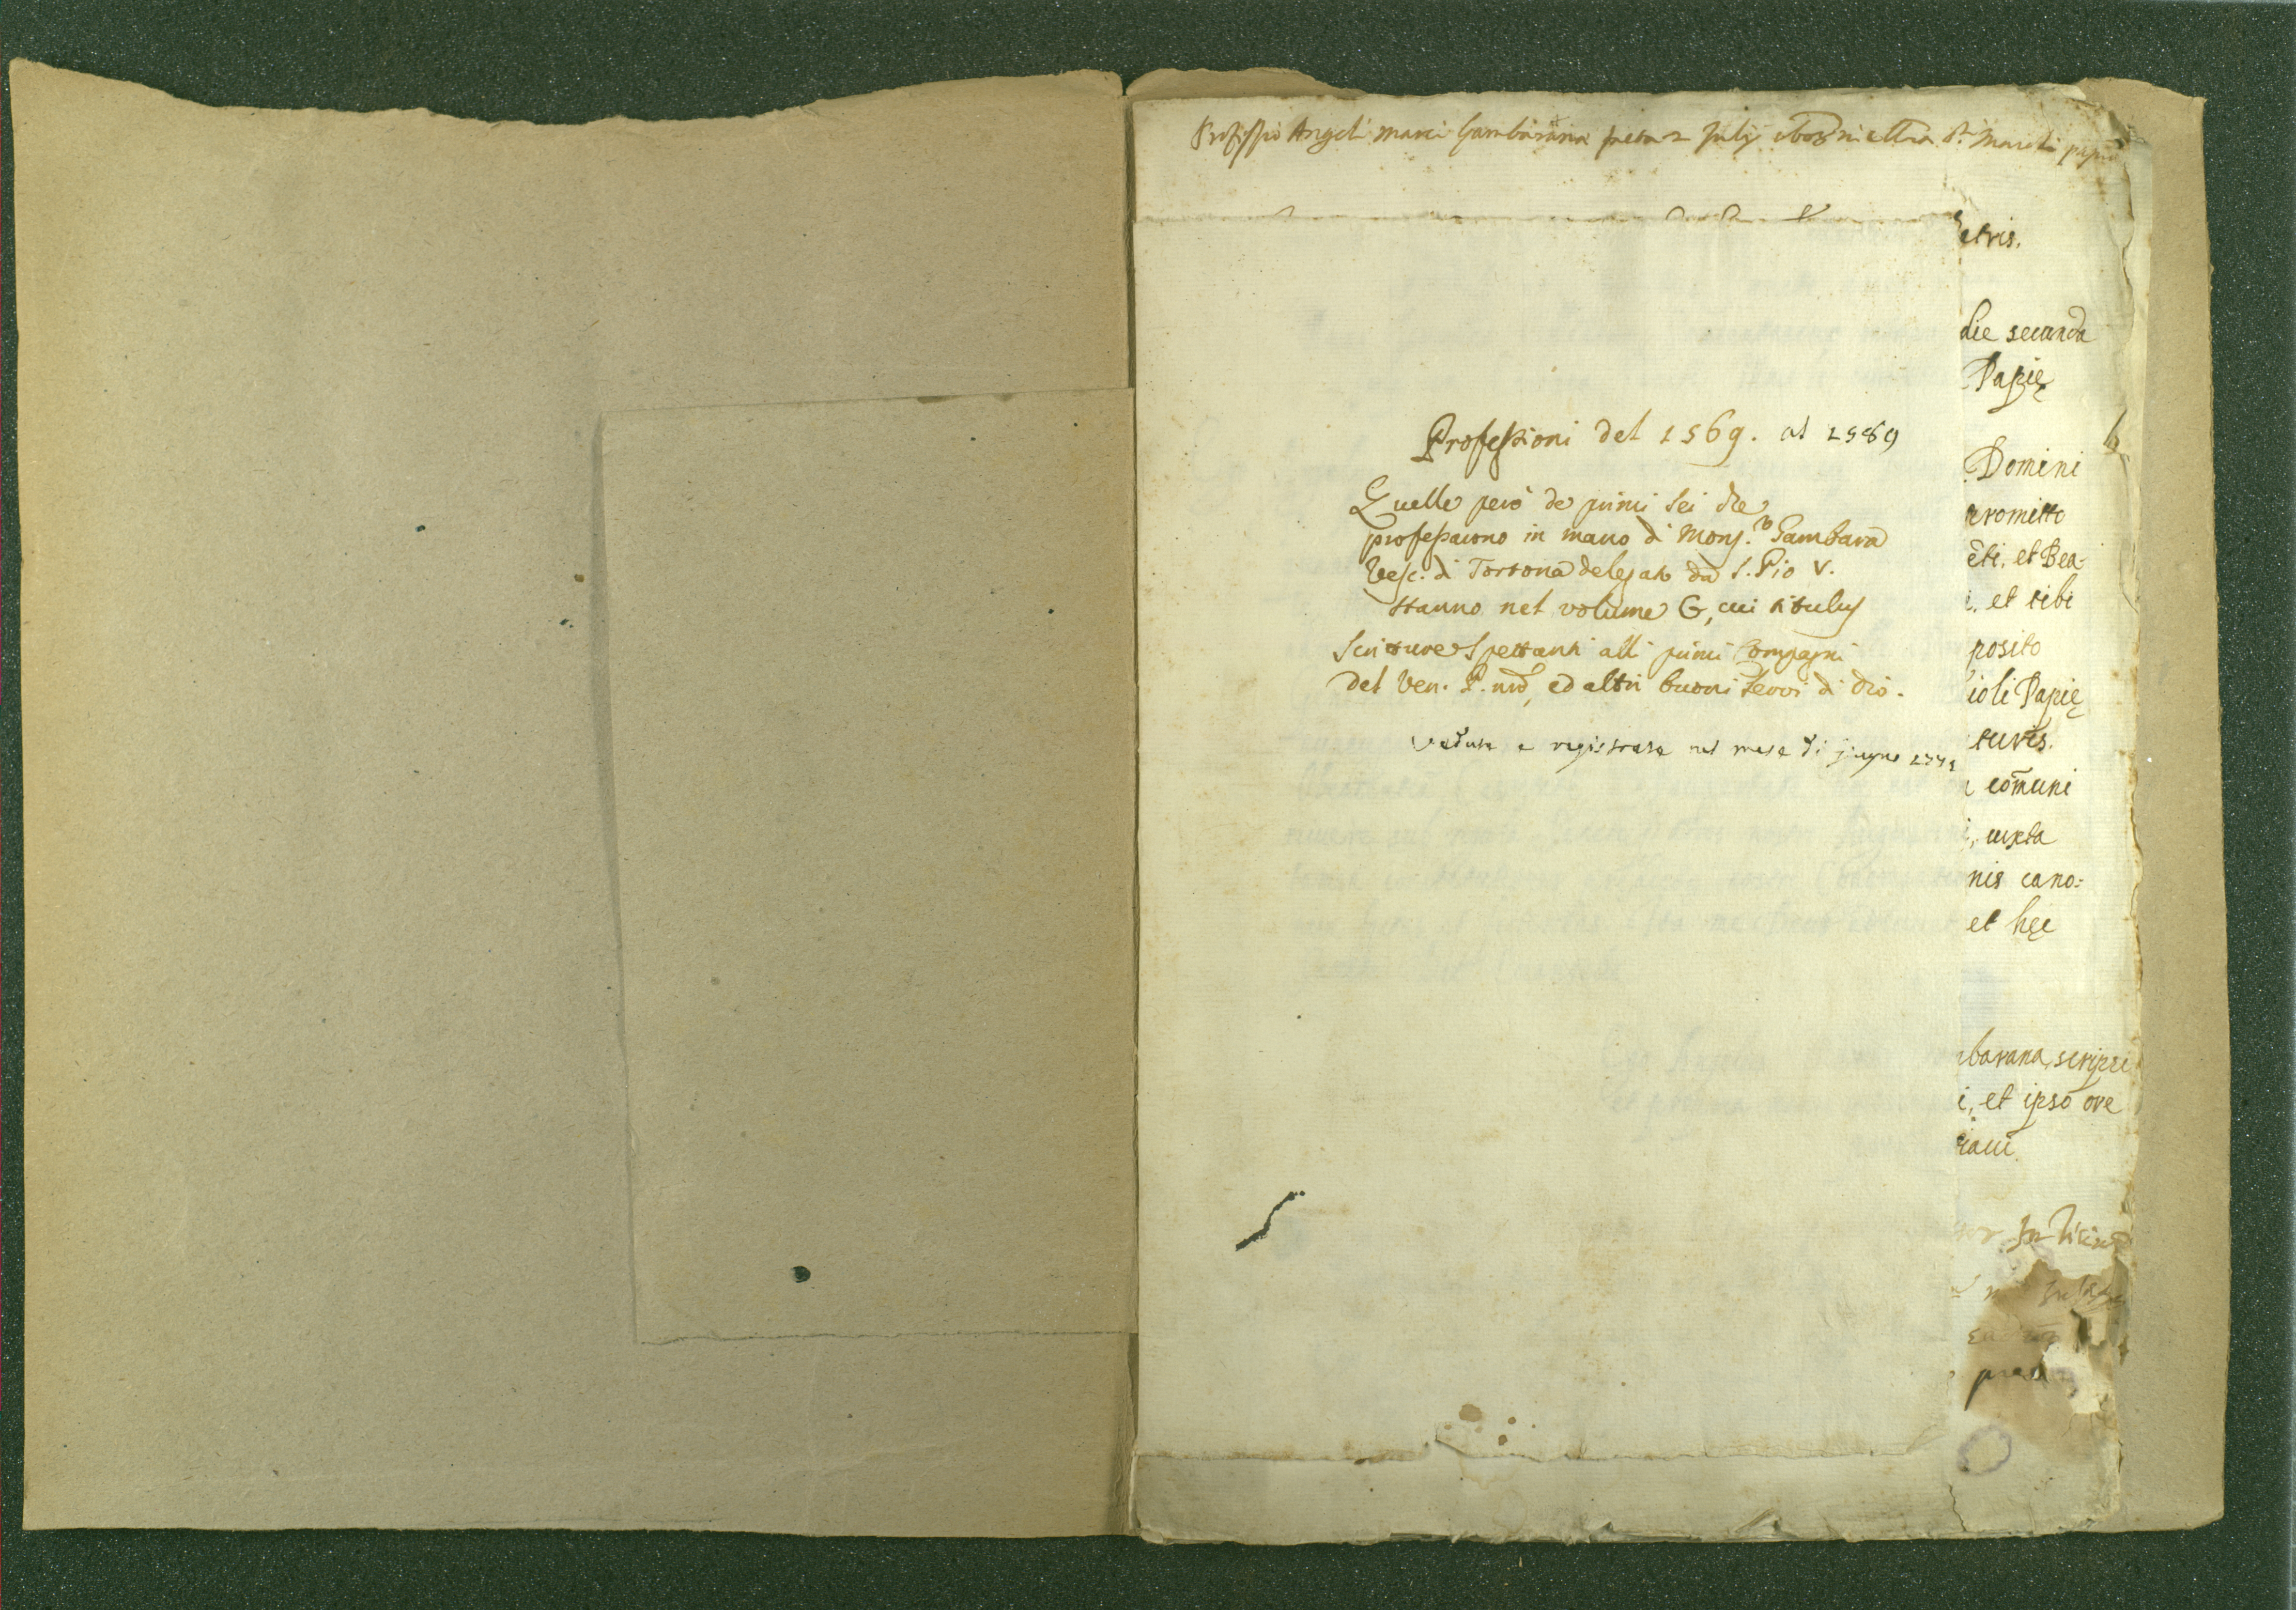 Professio Angeli Marci Gambarana facta 2 Julij 1569 in Ecclia S.ti Maioli papiae
etris.
die secunda
Papię
Professioni del 1569. al 1589
Quelle però de primi sei che
professarono in mano di Mons.r Gambara
Vesc. di Tortona delegato da S. Pio V.
stanno nel volume G, cui titulus
Scritture Spettanti alli primi Compagni
del Ven. P. nr̃o, ed altri buoni servi di Dio.
vedute e registrate nel mese di giugno
Domini
promitto
ẽti, et Bea-
i, et tibi
posito
ioli Papię
turis.
com̃uni
i, iuxta
nis cano=
et hęc
barana, scripsi
i, et ipso ore
iaui.